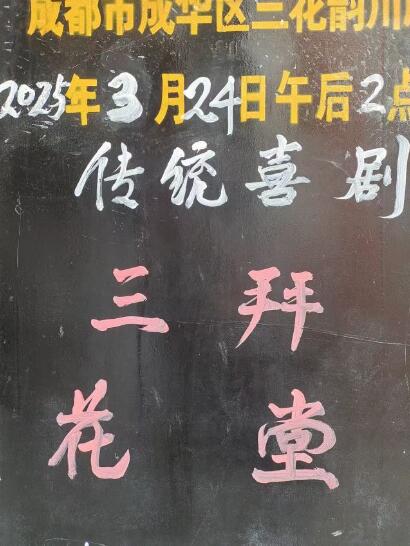 成都市成华区三花韵川
2025年3月24日午后2点
传统喜剧
三拜
花堂